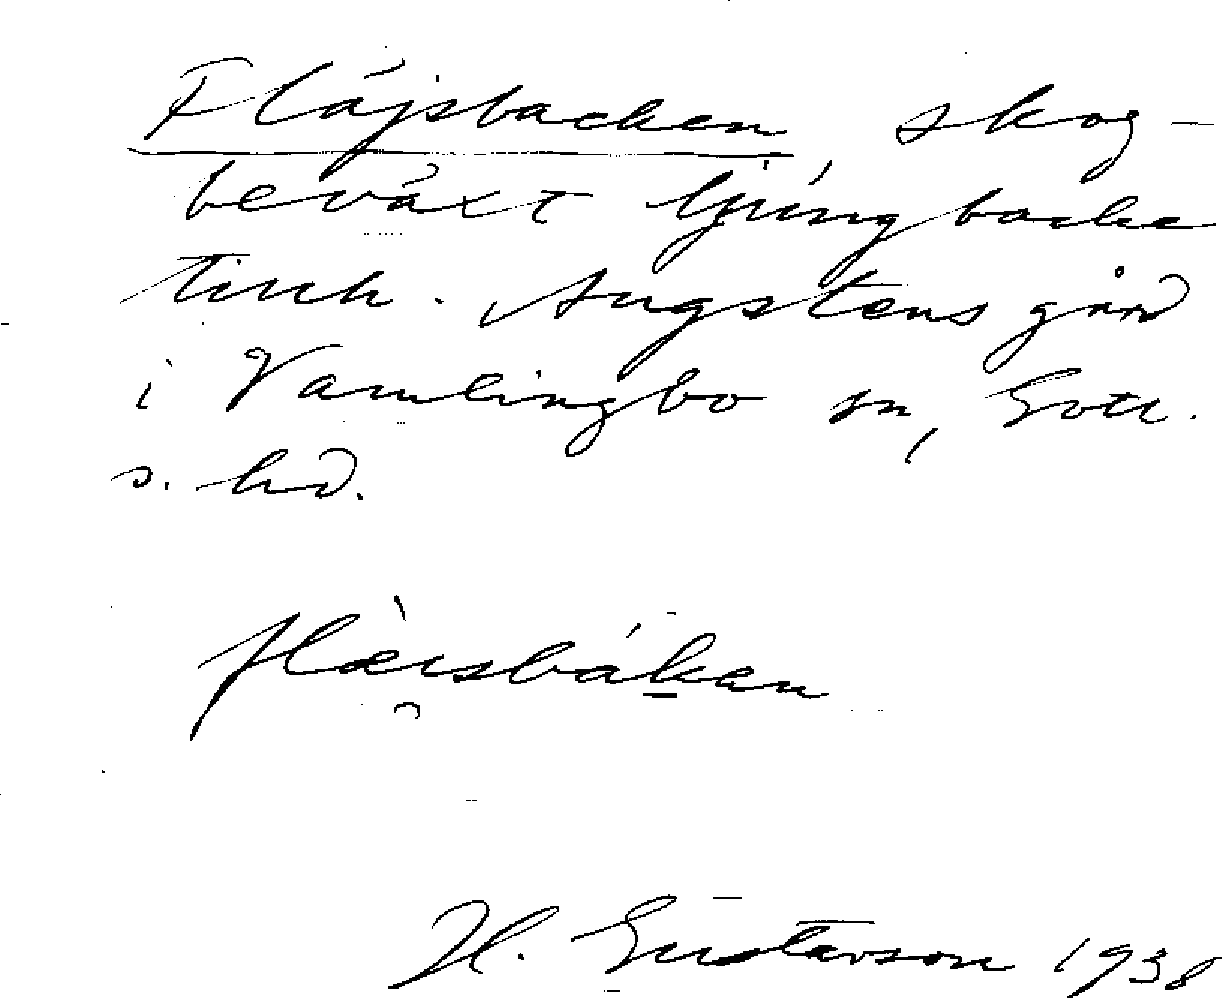 Fläjsbacken skog-
beväxt ljungbacke
tillh. Augstens gård
i Vamlingbo sn, Gotl.
s. hd.
flæ̀i̯sbák̠an
H. Gustavson 1938